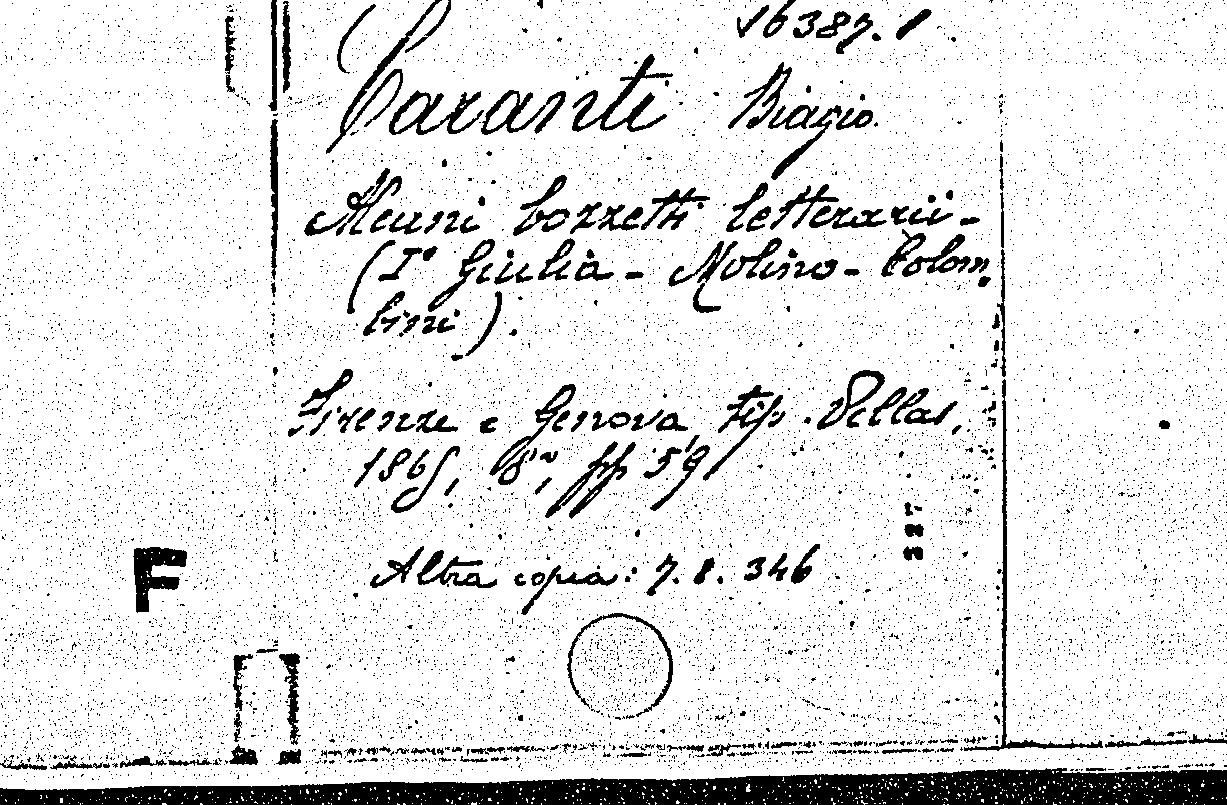 16387.8
Caranti Biagio.
Alcuni bozzetti letterarii -
(Iº Giulia - Molino - Colom
bini).
Firenze e Genova, tip. Pellas,
1865, 8º, pp 59
327
Altra copia: 7. 8. 346
F